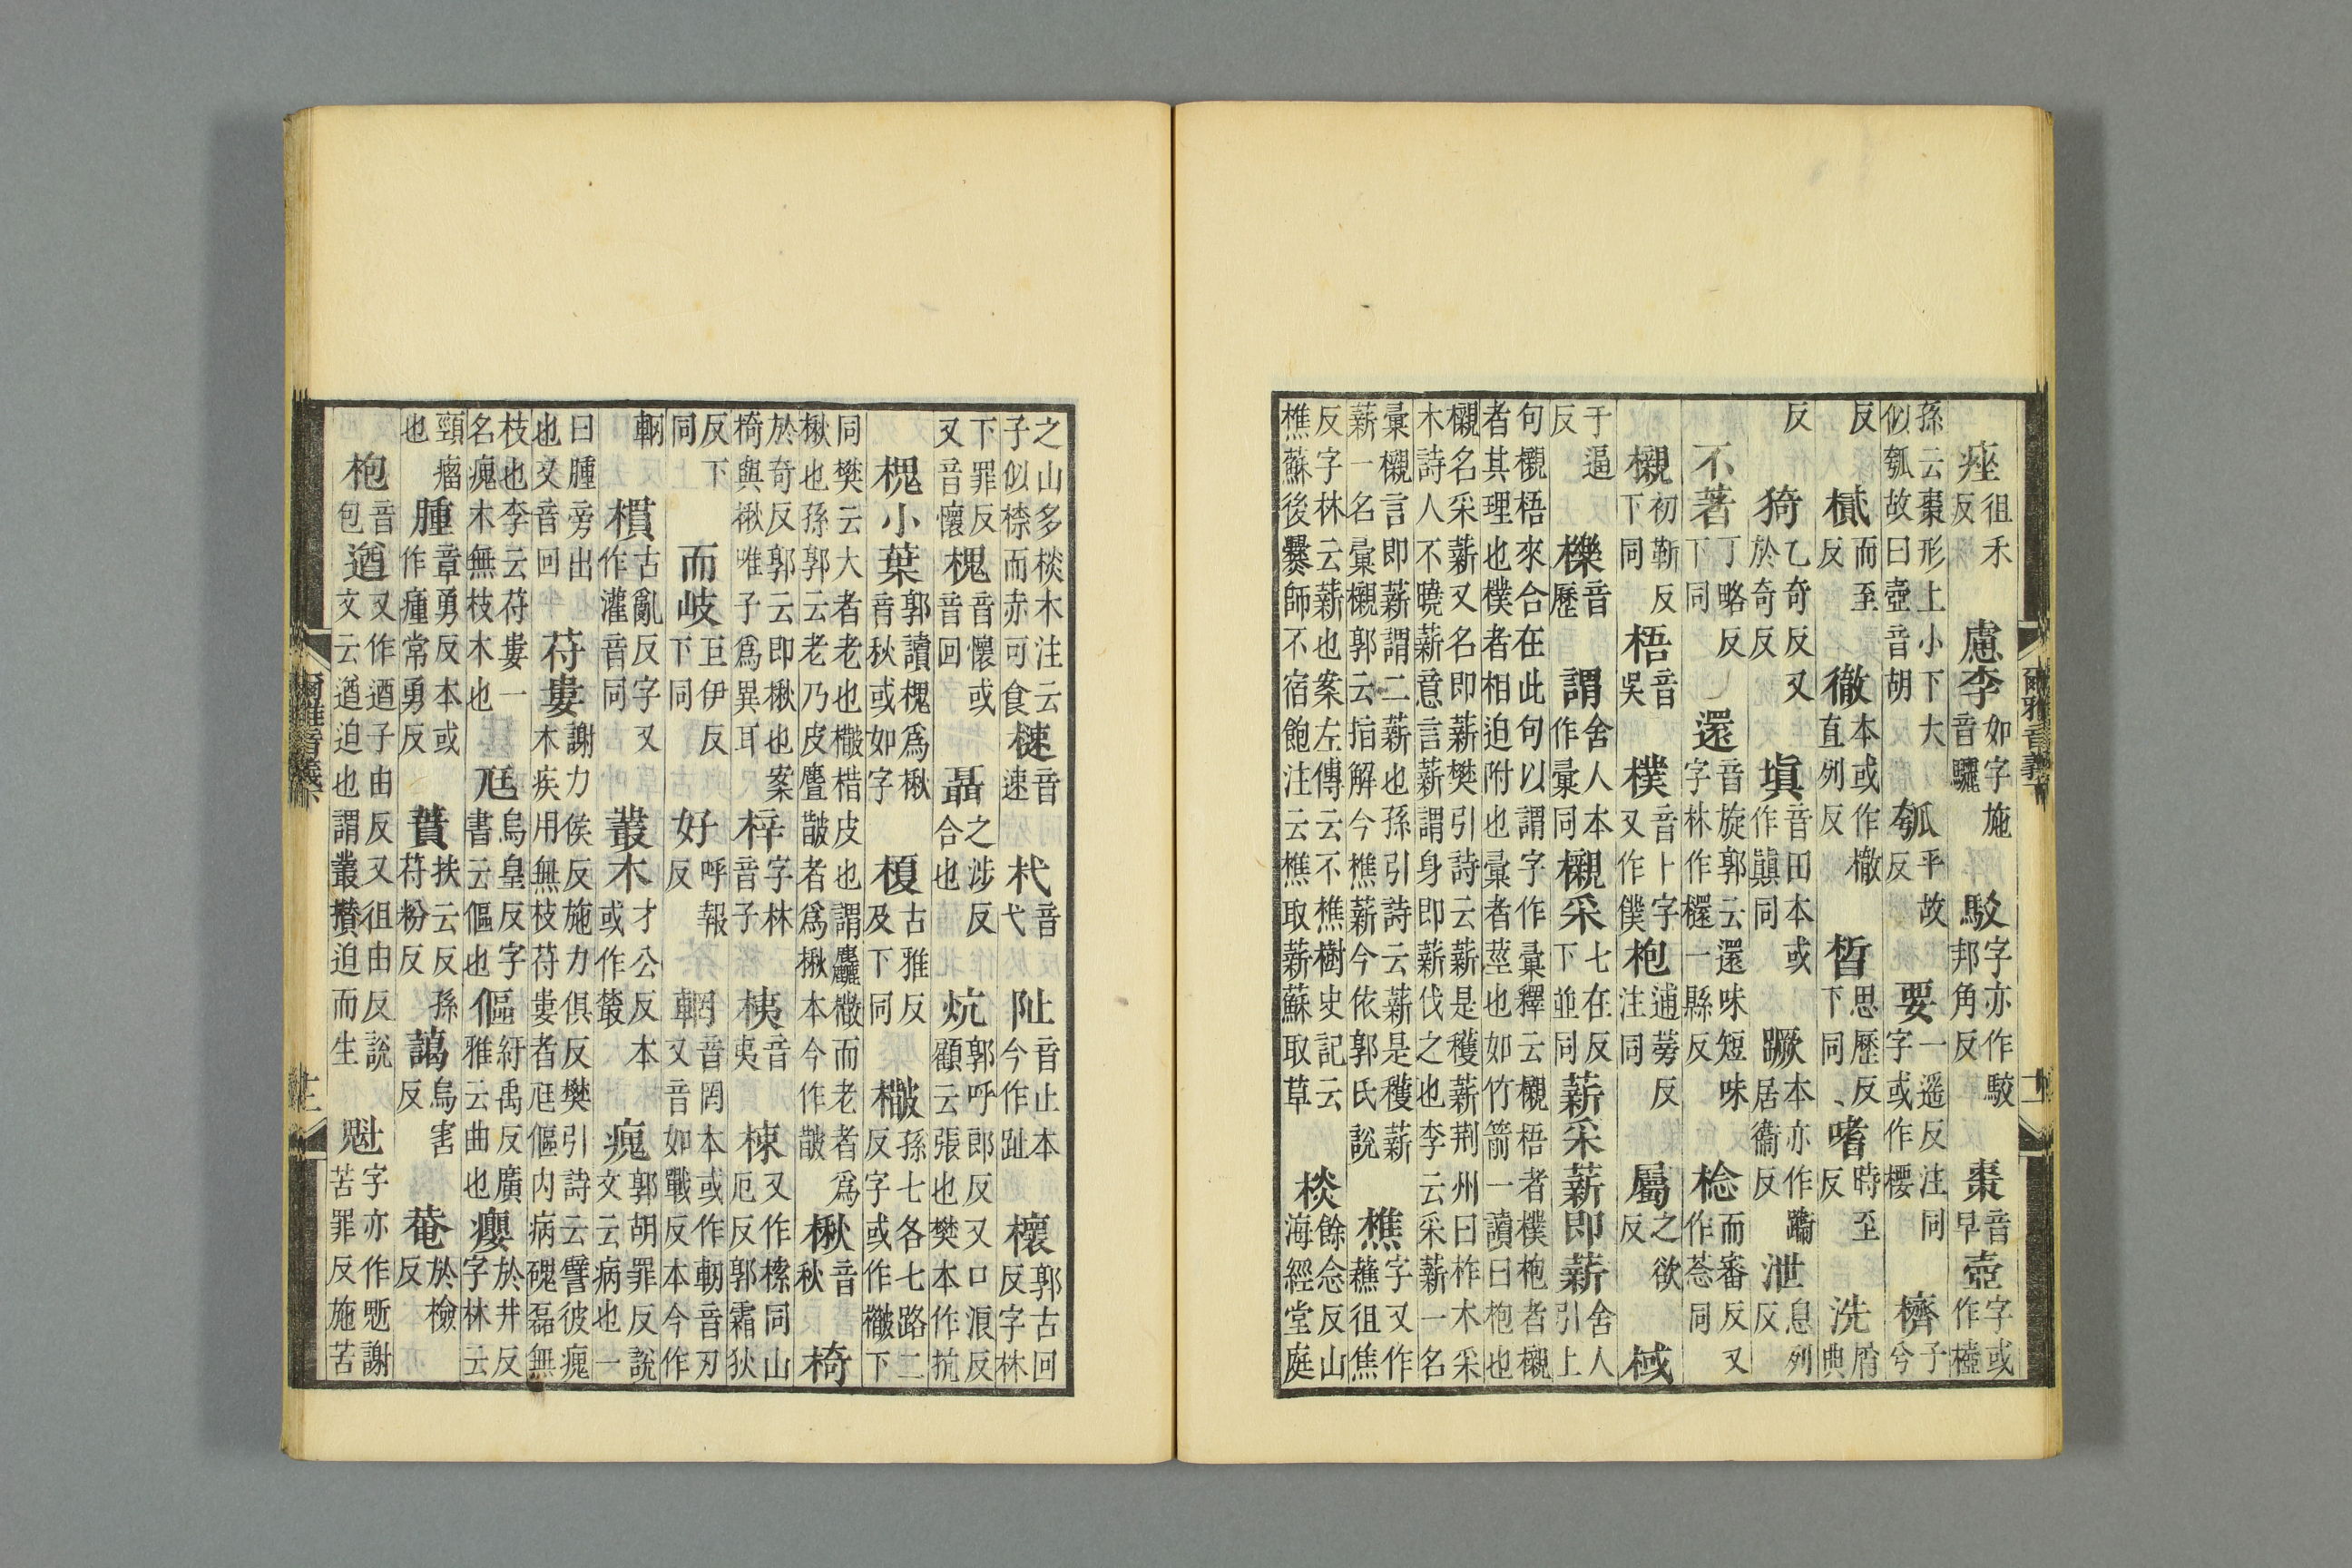 痤徂禾反慮李如字施音驢駁字亦作駮邦角反棗音早壺字或作𣞑
孫云棗形上小下大似瓠故曰壺音胡瓠平故反要一遥反注同字或作櫻櫅子兮
反樲而至反徹本或作㯙直列反晳思歷反下同嗜時至反洗屑典
反猗乙奇反又於奇反塡音田本或作顚同蹶本亦作蹫居衞反泄息列反
不著丁略反下同還音旋郭云還味短味字林作檈一縣反棯而審反又作荵同
櫬初靳反下同梧音吳樸音卜字又作僕枹逋蒡反注同屬之欲反棫
于逼反櫟音歷謂舍人本作彙同櫬采七在反下並同薪采薪即薪舍人引上
句櫬梧來合在此句以謂字作彙釋云櫬梧者樸枹者櫬者其理也樸者相迫附也彙者莖也如竹箭一讀曰枹也
櫬名采薪又名即薪樊引詩云薪是穫薪荆州曰柞木采木詩人不曉薪意言薪謂身即薪伐之也李云采薪一名
彙櫬言即薪謂二薪也孫引詩云薪是穫薪薪一名彙櫬郭云指解今樵薪今依郭氏說樵字又作藮徂焦
反字林云薪也案左傳云不樵樹史記云樵蘇後爨師不宿飽注云樵取薪蘇取草棪餘念反山海經堂庭
爾雅音義下
之山多棪木注云子似㮈而赤可食梀音速杙音弋阯音止本今作趾櫰郭古回反字林
下罪反又音懷槐音懷或音回聶之涉反合也炕郭呼郎反又口浪反顧云張也樊本作抗
槐小葉郭讀槐爲楸音秋或如字榎古雅反及下同㯓孫七各七路二反字或作㰎下
同樊云大者老也㯓楷皮也謂麤㯓而老者爲楸也孫郭云老乃皮麤皵者爲楸本今作皵楸音秋椅
於奇反郭云即楸也案椅與楸唯子爲異耳梓字林音子桋音夷栜又作㯃同山厄反郭霜狄
反下同而岐巨伊反下同好呼報反輞音罔本或作軔音刃又音如戰反本今作
輞樌古亂反字又作灌音同叢木才公反本或作藂瘣郭胡罪反說文云病也一
曰腫旁出也又音回苻婁謝力侯反施力俱反樊引詩云譬彼瘣木疾用無枝苻婁者尫傴内病磈磊無
枝也李云苻婁一名瘣木無枝木也尫烏皇反字書云傴也傴紆禹反廣雅云曲也癭於井反字林云
頸瘤也腫章勇反本或作㿈常勇反蕡扶云反孫苻粉反藹烏害反菴於檢反
枹音包遒又作逎子由反又徂由反說文云遒迫也謂叢攢迫而生魁字亦作謝苦罪反施苦
爾雅音義下